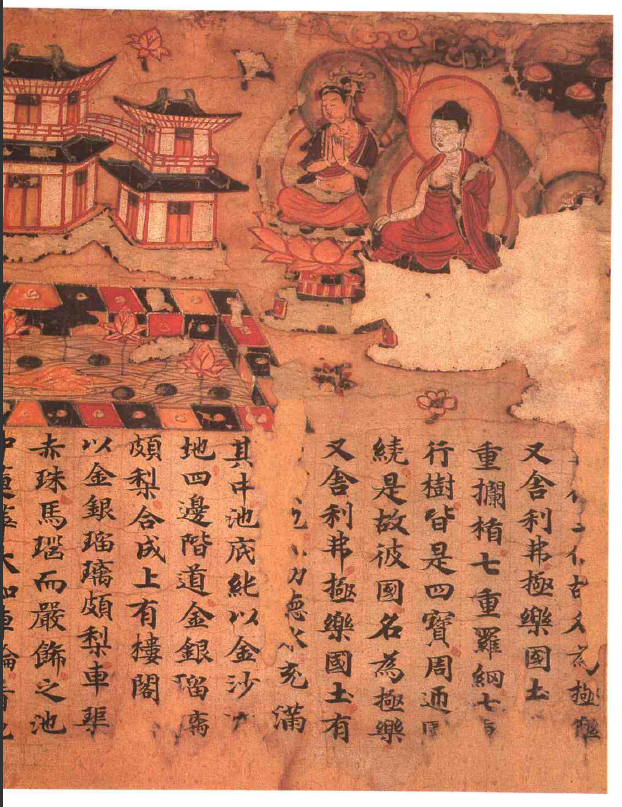 極樂
又舍利弗極樂國土
重攔楯七重羅網七
行樹皆是四寶周迊
繞是故彼國名為極樂
又舍利弗極樂國土有
德水充滿
其中池底純以金沙
地四邊階道金銀瑠璃
頗梨合成上有樓閣
以金銀瑠璃頗梨車璖
赤珠馬瑙而嚴飾之池